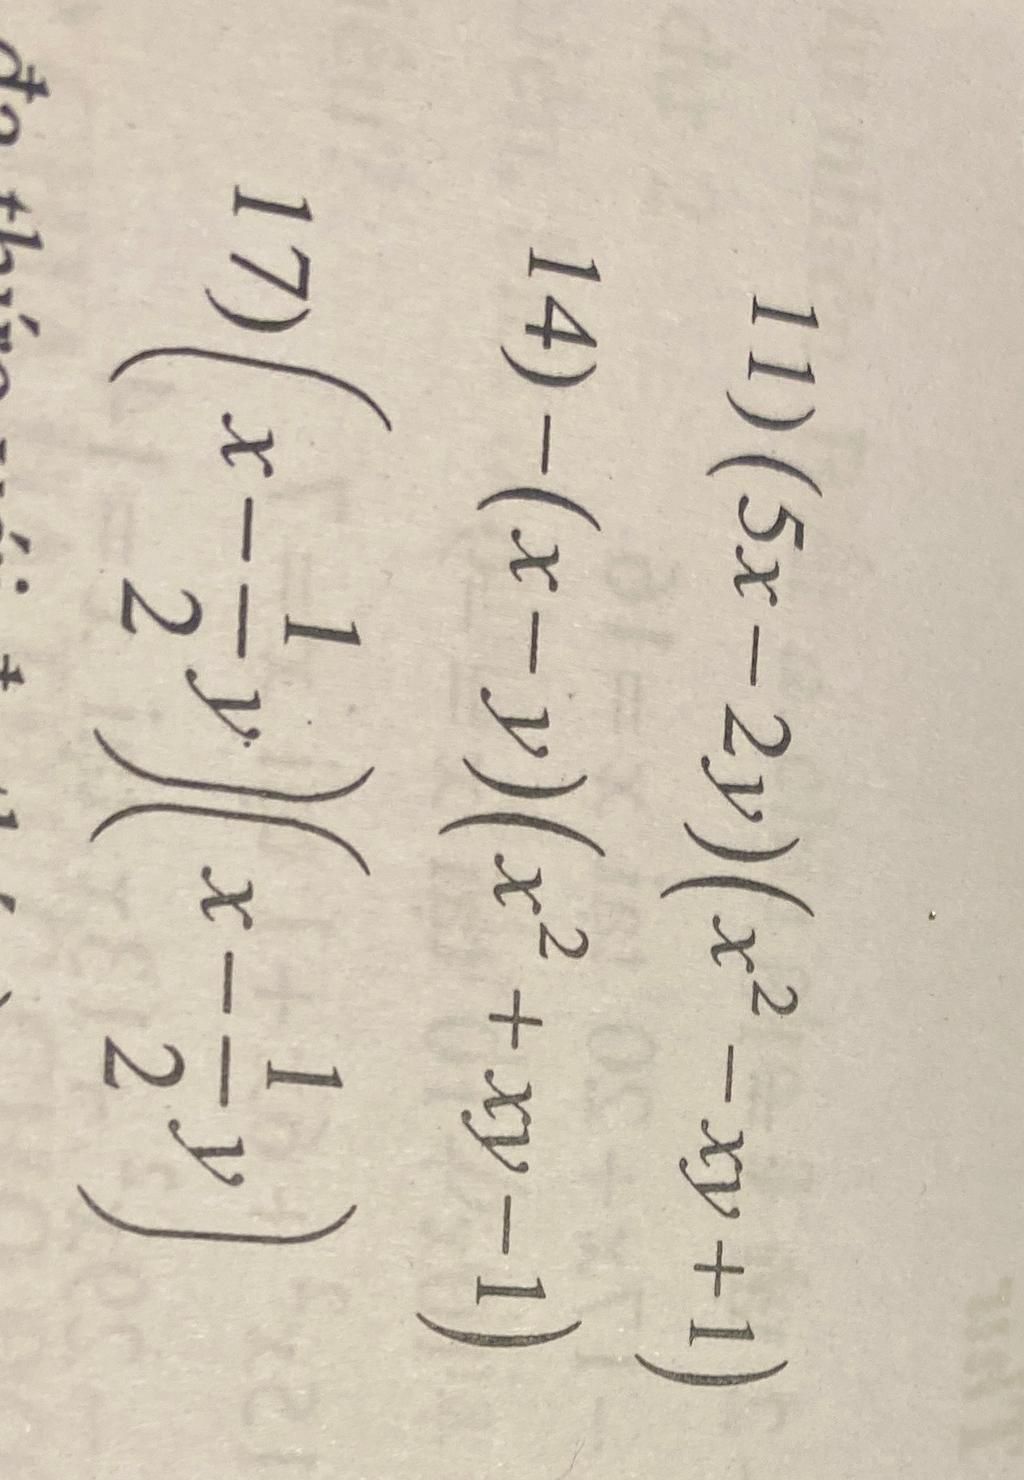 11) (5x – 2y)(x² – xy + 1)
14) – (x – y)(x² + xy – 1)
17) (x – 1/2 y)(x – 1/2 y)